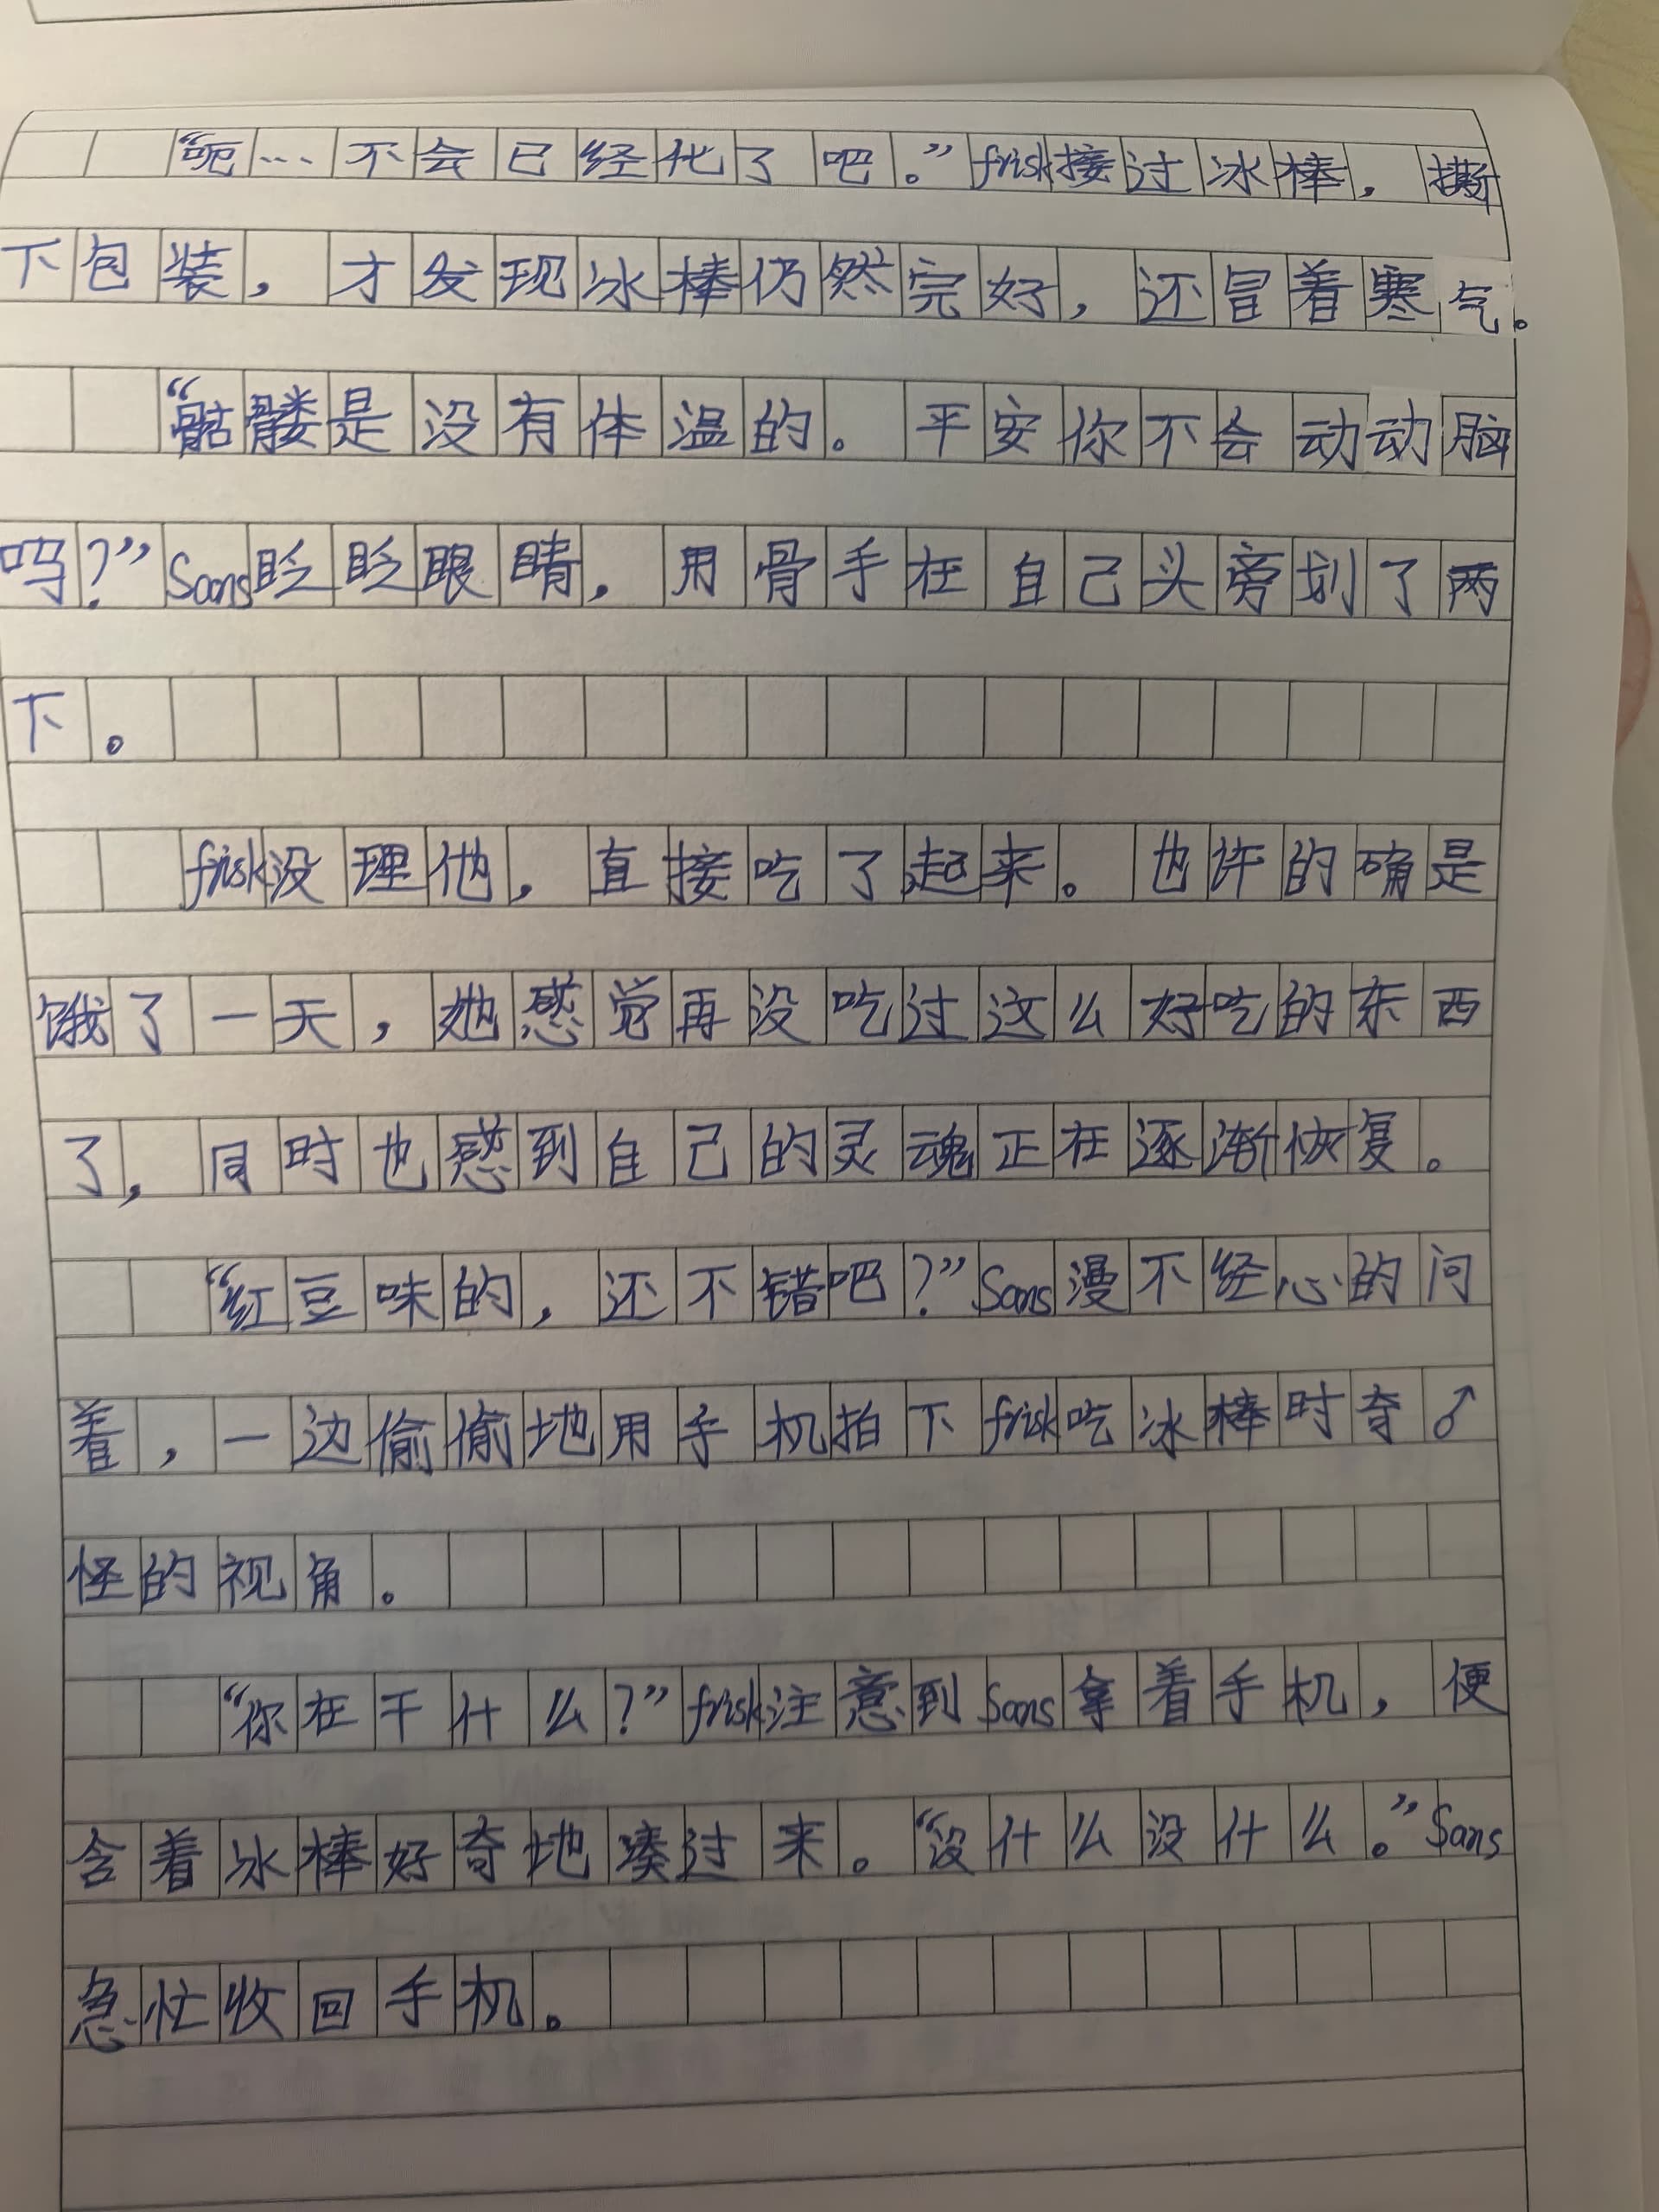 “呃…不会已经化了吧。”frisk接过冰棒，撕
下包装，才发现冰棒仍然完好，还冒着寒气。
“骷髅是没有体温的。平安你不会动动脑
吗？”Sans眨眨眼睛，用骨手在自己头旁划了两
下。
frisk没理他，直接吃了起来。也许的确是
饿了一天，她感觉再没吃过这么好吃的东西
了，同时也感到自己的灵魂正在逐渐恢复。
“红豆味的，还不错吧？”Sans漫不经心的问
着，一边偷偷地用手机拍下frisk吃冰棒时奇♂
怪的视角。
“你在干什么？”frisk注意到Sans拿着手机，便
含着冰棒好奇地凑过来。“没什么没什么。”Sans
急忙收回手机。